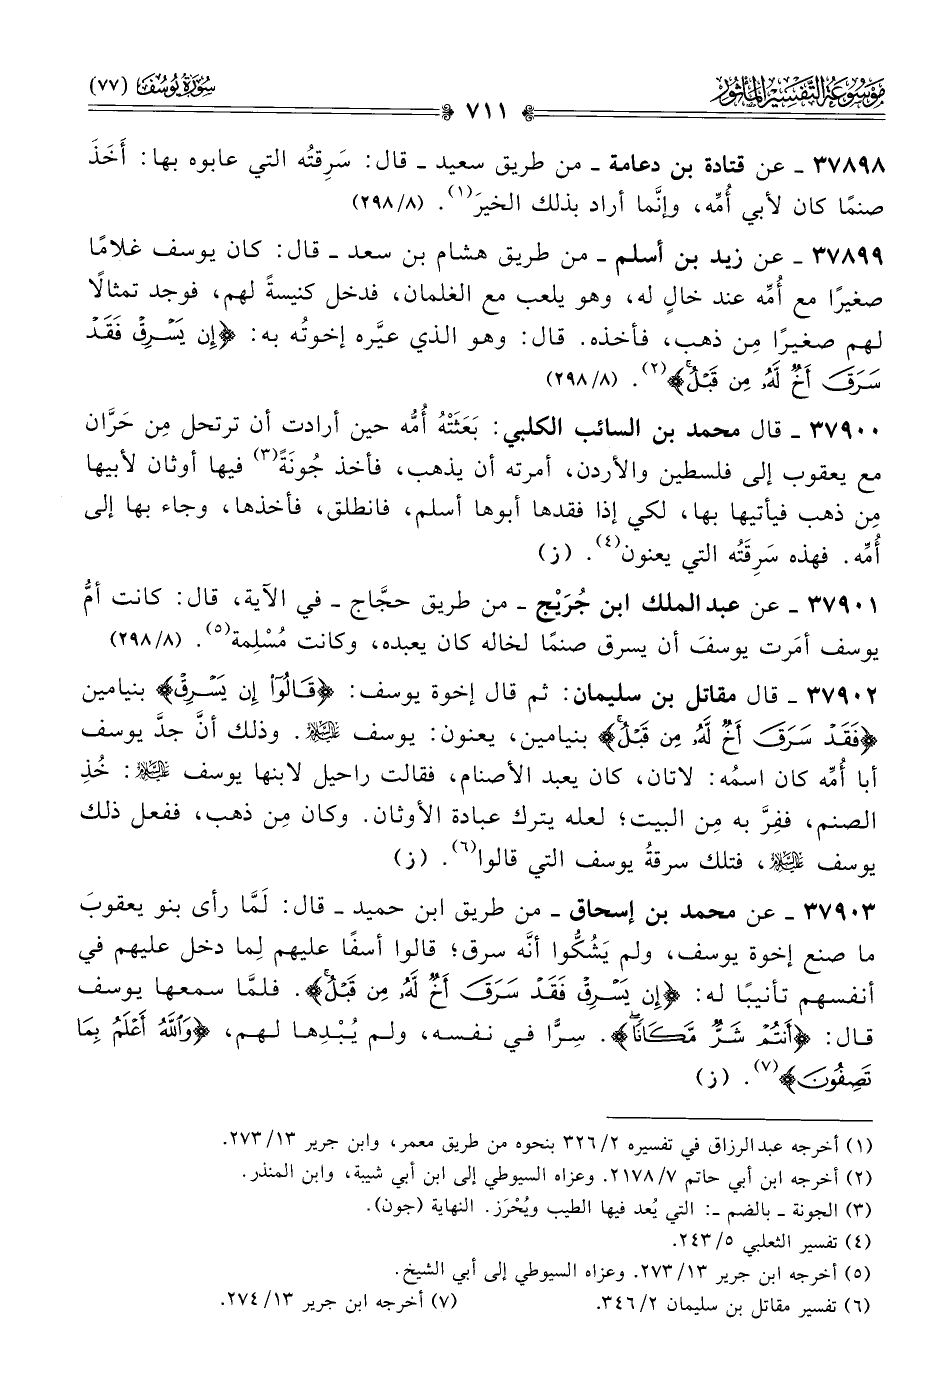 مَوْسُوعَةُ التَّفْسِيرِ المَأْثُور
سُورَةُ يُوسُف (٧٧)
٧١١
٣٧٨٩٨ ـ عن قتادة بن دعامة ـ من طريق سعيد ـ قال: سَرِقتُه التي عابوه بها: أَخَذَ
صنمًا كان لأبي أُمِّه، وإنَّما أراد بذلك الخيرَ(١). (٢٩٨/٨)
٣٧٨٩٩ ـ عن زيد بن أسلم ـ من طريق هشام بن سعد ـ قال: كان يوسف غلامًا
صغيرًا مع أُمِّه عند خالٍ له، وهو يلعب مع الغلمان، فدخل كنيسةً لهم، فوجد تمثالًا
لهم صغيرًا مِن ذهب، فأخذه. قال: وهو الذي عيَّره إخوتُه به: ﴿إِن يَسْرِقْ فَقَدْ
سَرَقَ أَخٌ لَّهُۥ مِن قَبْلُ﴾(٢). (٢٩٨/٨)
٣٧٩٠٠ ـ قال محمد بن السائب الكلبي: بَعَثَتْهُ أُمُّه حين أرادت أن ترتحل مِن حَرَّان
مع يعقوب إلى فلسطين والأردن، أمرته أن يذهب، فأخذ جُونَةً(٣) فيها أوثان لأبيها
مِن ذهب فيأتيها بها، لكي إذا فقدها أبوها أسلم، فانطلق، فأخذها، وجاء بها إلى
أُمِّه. فهذه سَرِقَتُه التي يعنون(٤). (ز)
٣٧٩٠١ ـ عن عبد الملك ابن جُرَيْج ـ من طريق حجَّاج ـ في الآية، قال: كانت أمُّ
يوسف أمَرت يوسفَ أن يسرق صنمًا لخاله كان يعبده، وكانت مُسْلِمة(٥). (٢٩٨/٨)
٣٧٩٠٢ ـ قال مقاتل بن سليمان: ثم قال إخوة يوسف: ﴿قَالُوٓا۟ إِن يَسْرِقْ﴾ بنيامين
﴿فَقَدْ سَرَقَ أَخٌ لَّهُۥ مِن قَبْلُ﴾ بنيامين، يعنون: يوسف عليه السلام. وذلك أنَّ جدَّ يوسف
أبا أُمِّه كان اسمُه: لاتان، كان يعبد الأصنام، فقالت راحيل لابنها يوسف عليه السلام: خُذِ
الصنم، ففِرَّ به مِن البيت؛ لعله يترك عبادة الأوثان. وكان مِن ذهب، ففعل ذلك
يوسف عليه السلام، فتلك سرقةُ يوسف التي قالوا(٦). (ز)
٣٧٩٠٣ ـ عن محمد بن إسحاق ـ من طريق ابن حميد ـ قال: لَمَّا رأى بنو يعقوبَ
ما صنع إخوة يوسف، ولم يَشُكُّوا أنَّه سرق؛ قالوا أسفًا عليهم لِما دخل عليهم في
أنفسهم تأنيبًا له: ﴿إِن يَسْرِقْ فَقَدْ سَرَقَ أَخٌ لَّهُۥ مِن قَبْلُ﴾. فلمَّا سمعها يوسف
قال: ﴿أَنتُمْ شَرٌّ مَّكَانًا﴾. سِرًّا في نفسه، ولم يُبْدِها لهم، ﴿وَٱللَّهُ أَعْلَمُ بِمَا
تَصِفُونَ﴾(٧). (ز)
(١) أخرجه عبد الرزاق في تفسيره ٣٢٦/٢ بنحوه من طريق معمر، وابن جرير ٢٧٣/١٣.
(٢) أخرجه ابن أبي حاتم ٢١٧٨/٧. وعزاه السيوطي إلى ابن أبي شيبة، وابن المنذر.
(٣) الجونة ـ بالضم ـ: التي يُعد فيها الطيب ويُحْرَز. النهاية (جون).
(٤) تفسير الثعلبي ٢٤٣/٥.
(٥) أخرجه ابن جرير ٢٧٣/١٣. وعزاه السيوطي إلى أبي الشيخ.
(٦) تفسير مقاتل بن سليمان ٣٤٦/٢. (٧) أخرجه ابن جرير ٢٧٤/١٣.